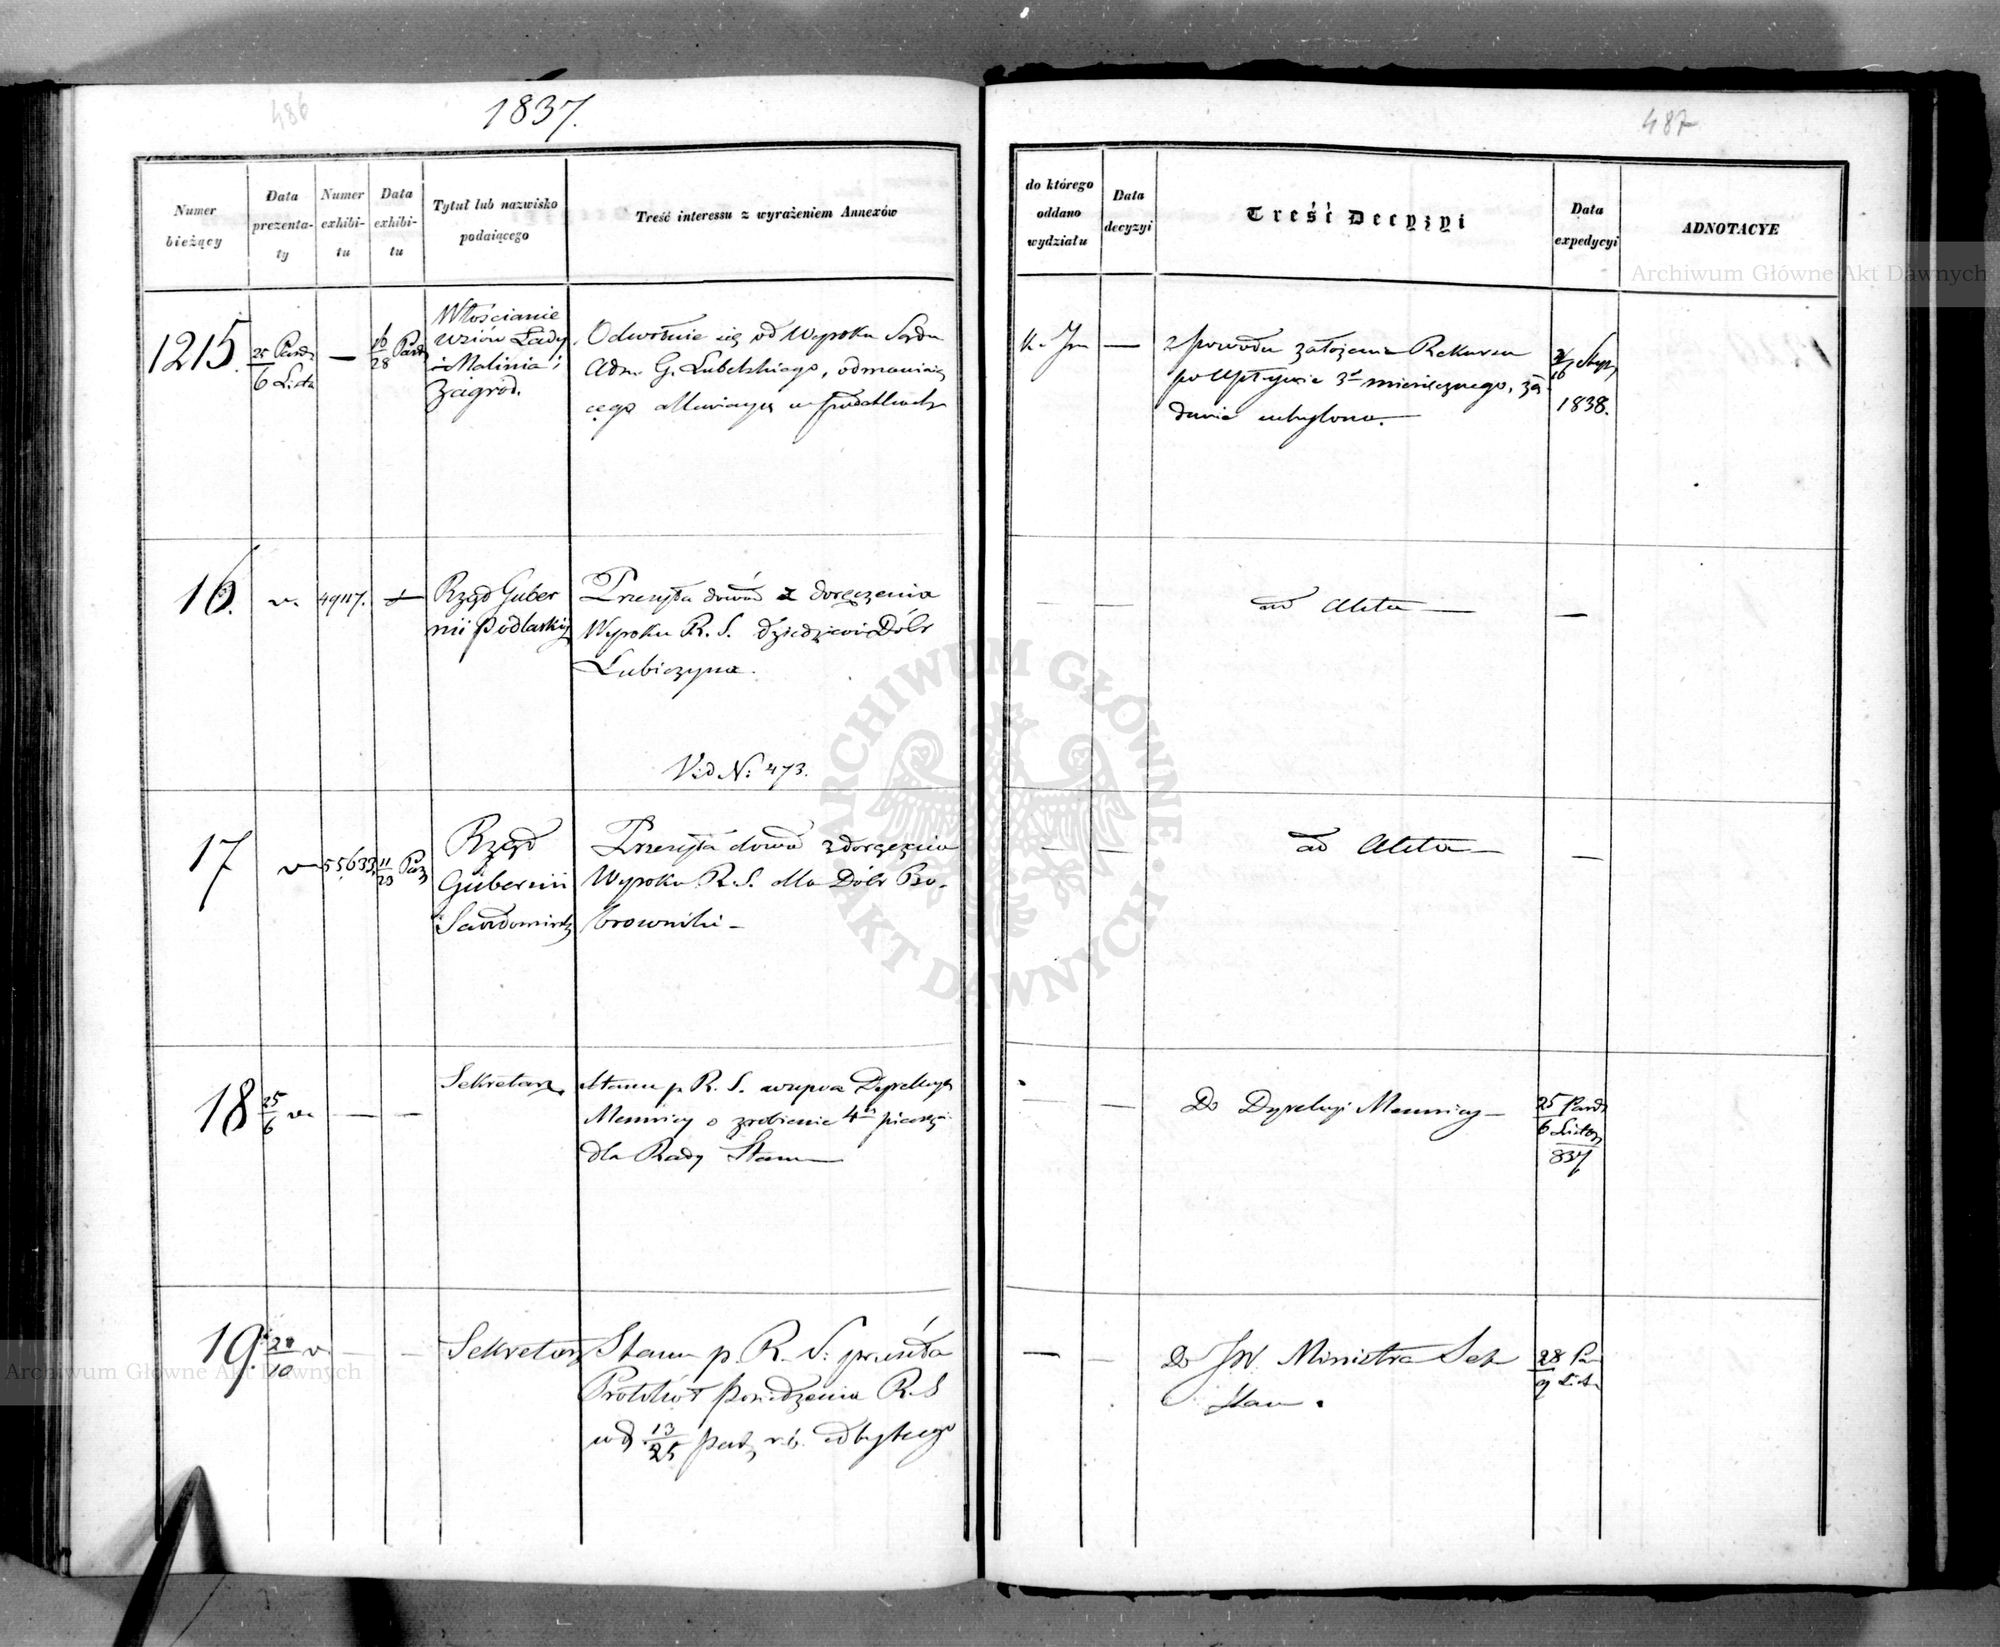 486
1837.
487
Numer bieżący
Data prezentaty
Numer exhibitu
Data exhibitu
Tytuł lub nazwisko podaiącego
Treść interessu z wyrażeniem Annexów
do którego oddano wydziału
Data decyzyi
Treść Decyzyi
Data expedycyi
ADNOTACYE
1215.
25 Paźdz
6 List
—
16
28 Paźd
Włościanie
wsiów Łady
i Malinia i
Zagród.
Odwołanie się od Wyroku Sądu
Adm. G. Lubelskiego, odmawiaią
cego
—
z powodu założenia Rekursu
po upływie 3 miesięcznego, żą
danie uchylono.
Stycz
1838.
16.
v.
49117.
Rząd Guber
nii Podlaskiej
Przesyła dowód z doręczenia
Wyroku R. S. dziedzicowi Dóbr
Łubiczyna.
Vid N: 473.
— —
ad Acta —
—
17
v
55633.
11
23 Paź
Rząd
Gubernii
Sandomirsk
Przesyła dowód z doręczenia
Wyroku R. S. dla Dóbr Bo-
browniki —
— —
ad Acta —
—
18
25
6
v.
— —
Sekretarz
Stanu p. R. S. wzywa Dyrekcyą
Mennicy o zrobienie 4ch pieczęci
dla Rady Stanu —
— —
Do Dyrekcyi Mennicy —
25 Paźdz
6 Listop
837
19.
28
10
v.
— —
Sekretarz
Stanu p. R. S: przesyła
Protokół posiedzenia R. S
w d. 13/25 paźdz r. b. odbytego
— —
Do JW. Ministra Sek
Stanu.
28 Paź
9 List
Archiwum Główne Akt Dawnych
ARCHIWUM GŁÓWNE · AKT DAWNYCH ·
Archiwum Główne Akt Dawnych